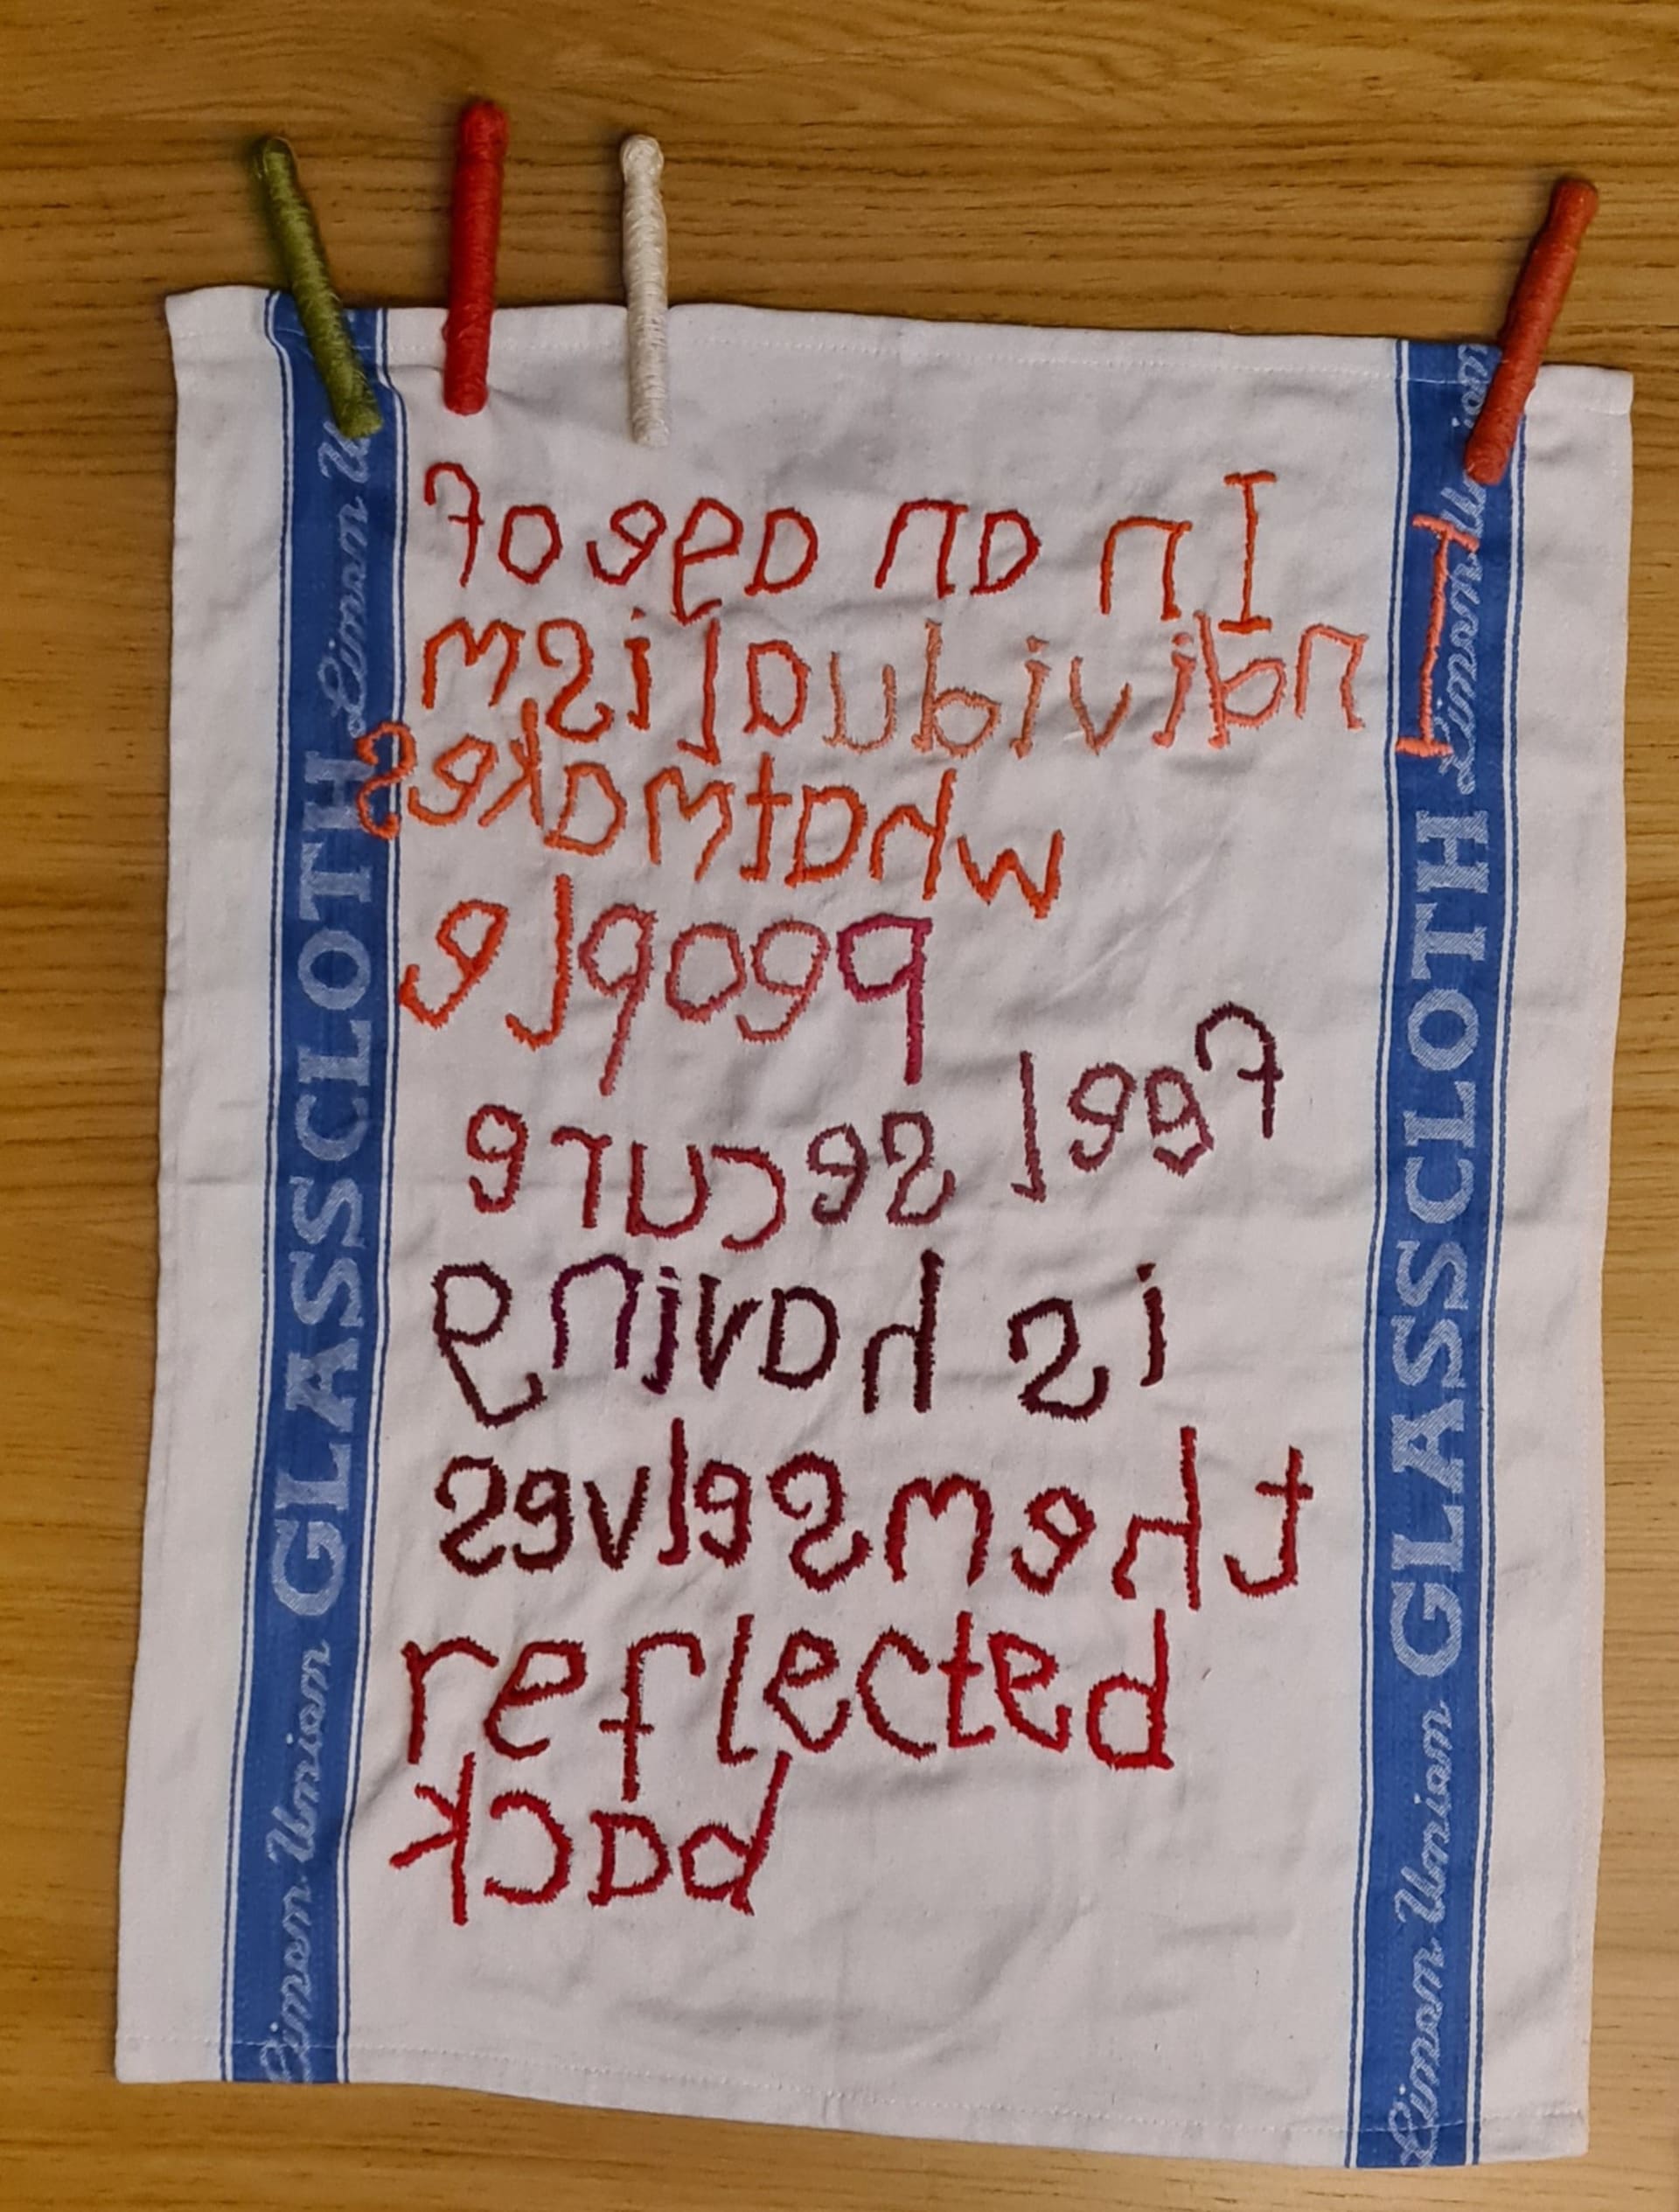 In an age of
Individualism
whatmakes
people
feel secure
is having
themselves
reflected
back
Linen Union GLASS CLOTH Linen
Linen Union GLASS CLOTH Linen Union